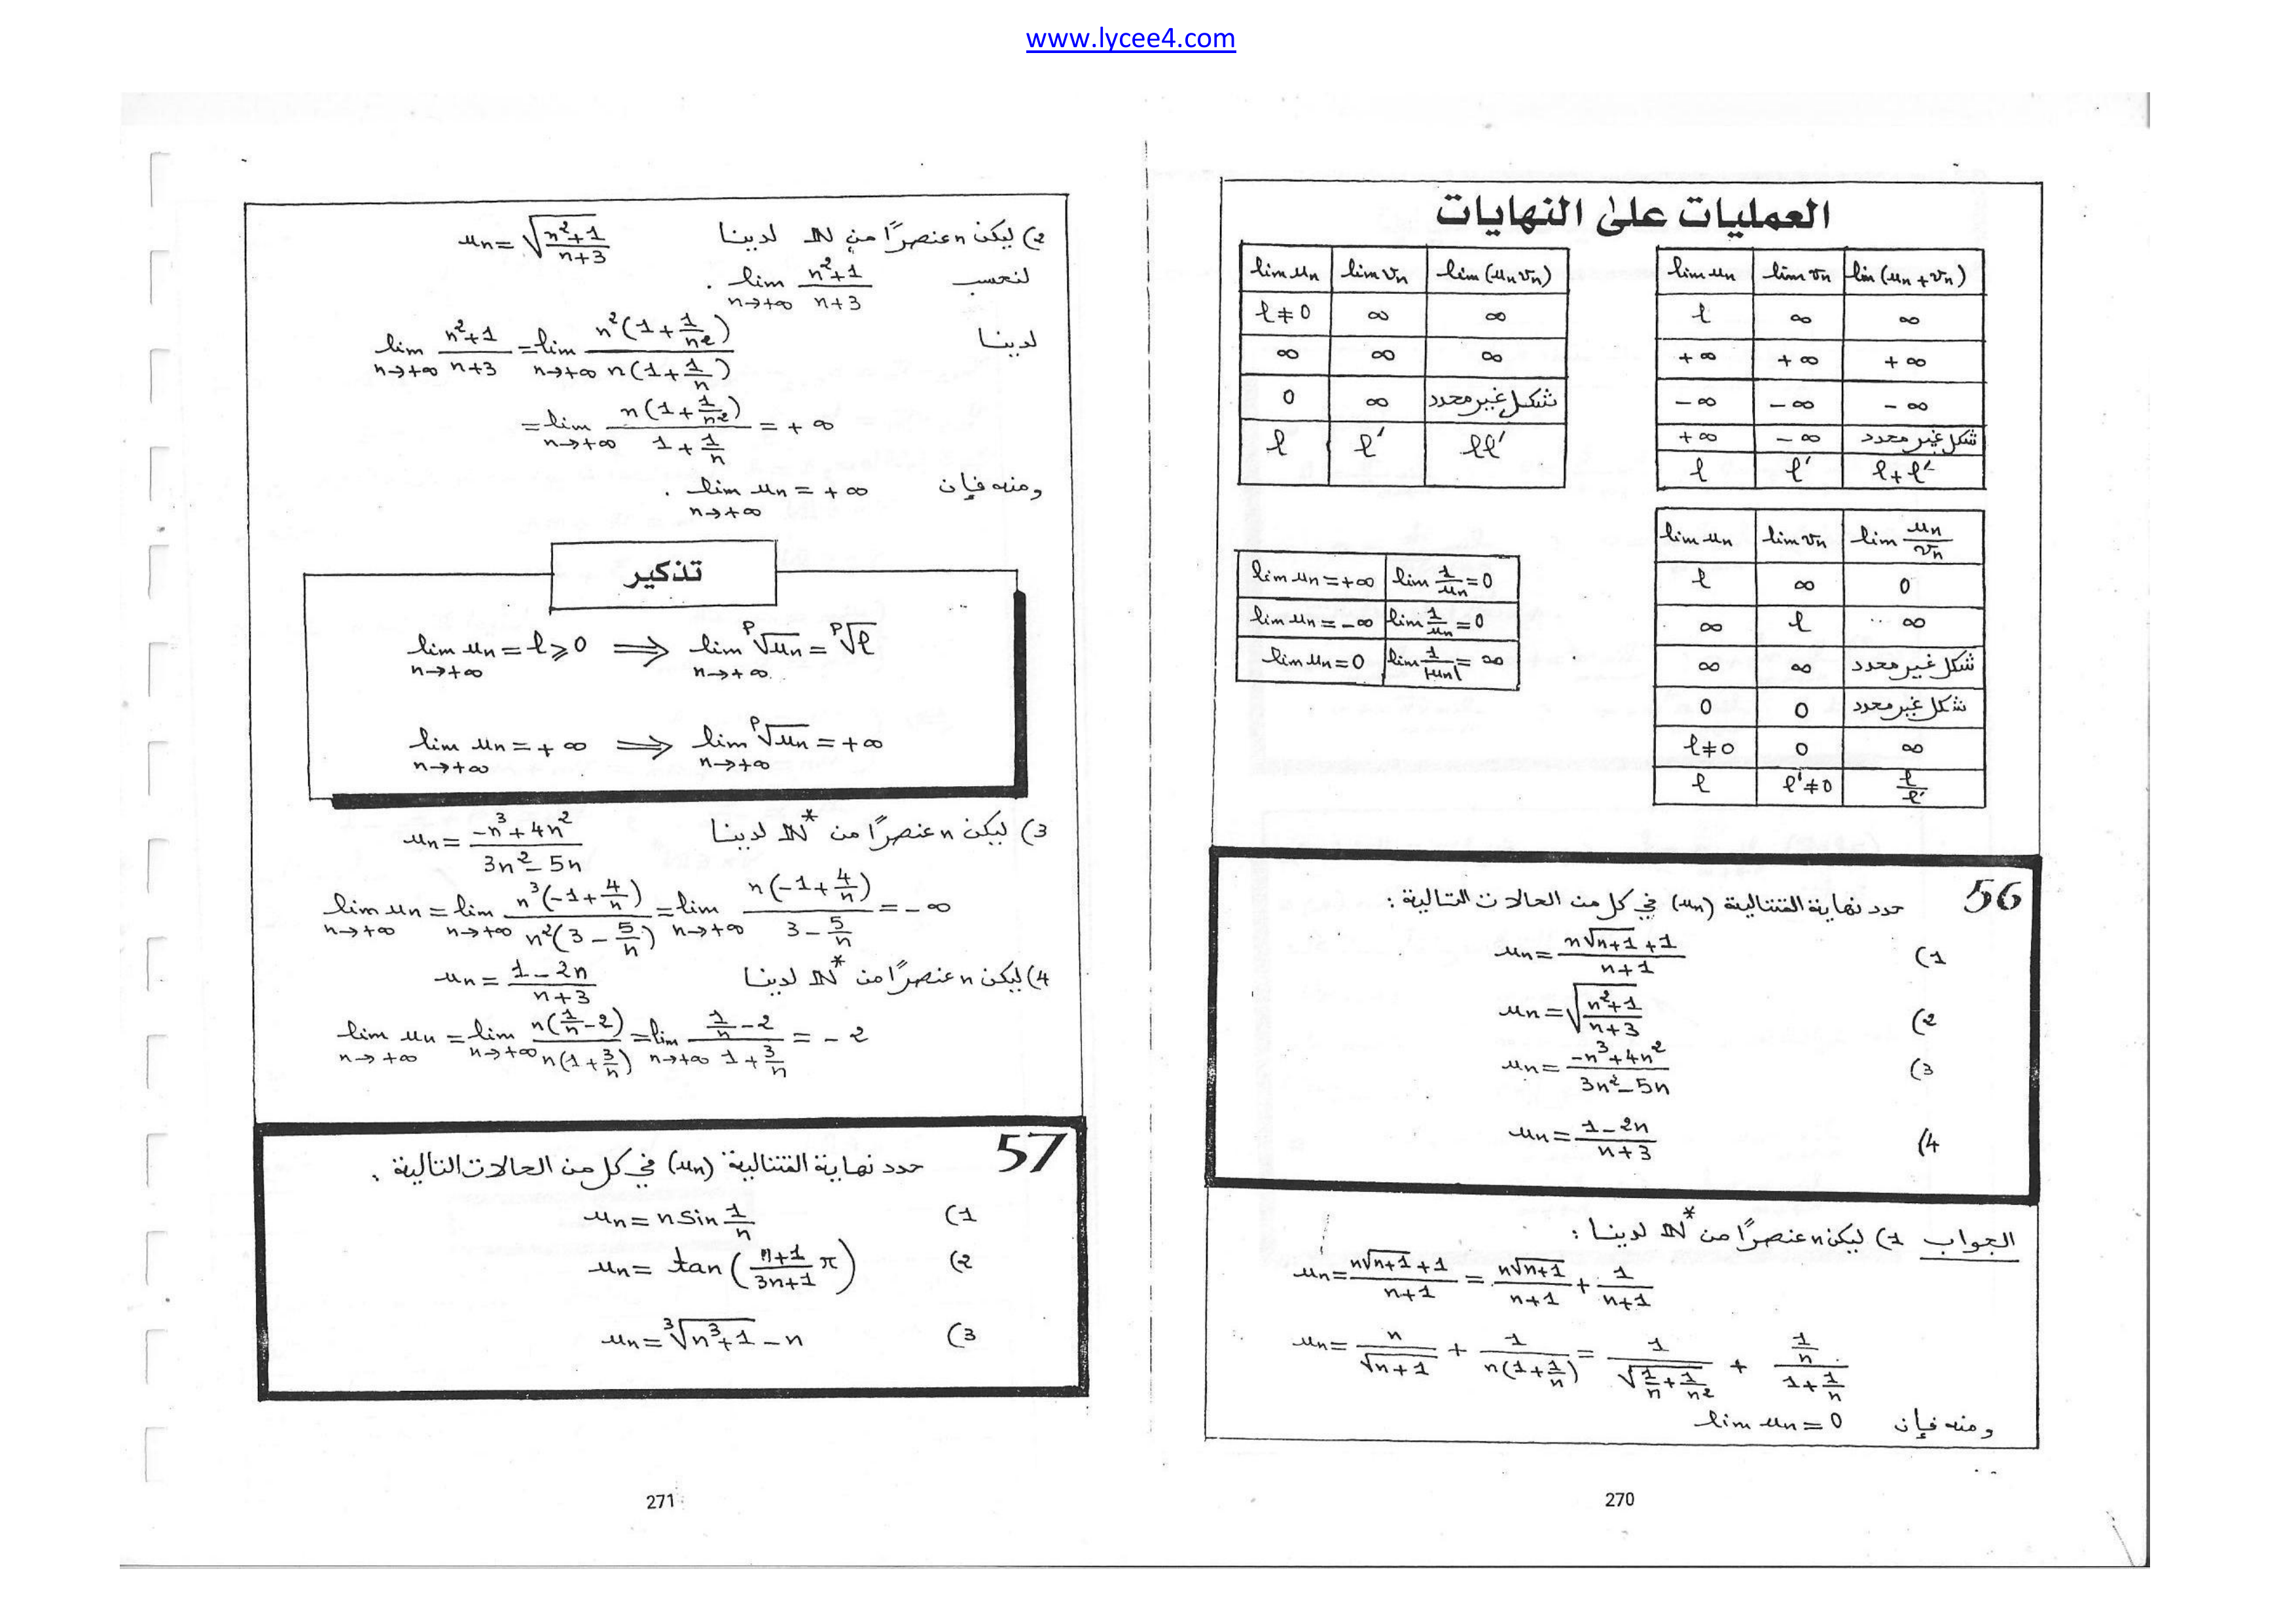 www.lycee4.com
العمليات على النهايات
lim un | lim vn | lim (un + vn)
ℓ | ∞ | ∞
+∞ | +∞ | +∞
-∞ | -∞ | -∞
+∞ | -∞ | شكل غير محدد
ℓ | ℓ' | ℓ+ℓ'
lim un | lim vn | lim (un vn)
ℓ≠0 | ∞ | ∞
∞ | ∞ | ∞
0 | ∞ | شكل غير محدد
ℓ | ℓ' | ℓℓ'
lim un | lim vn | lim un/vn
ℓ | ∞ | 0
∞ | ℓ | ∞
∞ | ∞ | شكل غير محدد
0 | 0 | شكل غير محدد
ℓ≠0 | 0 | ∞
ℓ | ℓ'≠0 | ℓ/ℓ'
lim un = +∞ | lim 1/un = 0
lim un = -∞ | lim 1/un = 0
lim un = 0 | lim 1/|un| = ∞
56 حدد نهاية المتتالية (un) في كل من الحالات التالية :
1) un = (n√(n+1) + 1)/(n+1)
2) un = √((n²+1)/(n+3))
3) un = (-n³+4n²)/(3n²-5n)
4) un = (1-2n)/(n+3)
الجواب 1) ليكن n عنصرًا من ℕ* لدينا :
un = (n√(n+1) + 1)/(n+1) = n√(n+1)/(n+1) + 1/(n+1)
un = n/√(n+1) + 1/(n(1+1/n)) = 1/√(1/n + 1/n²) + (1/n)/(1+1/n)
ومنه فإن lim un = 0
270
2) ليكن n عنصرًا من ℕ لدينا un = √((n²+1)/(n+3))
لنحسب lim n→+∞ (n²+1)/(n+3) .
لدينا lim n→+∞ (n²+1)/(n+3) = lim n→+∞ n²(1+1/n²)/(n(1+1/n))
= lim n→+∞ n(1+1/n²)/(1+1/n) = +∞
ومنه فإن lim n→+∞ un = +∞ .
تذكير
lim n→+∞ un = ℓ ⩾ 0 ⟹ lim n→+∞ ᵖ√un = ᵖ√ℓ
lim n→+∞ un = +∞ ⟹ lim n→+∞ ᵖ√un = +∞
3) ليكن n عنصرًا من ℕ* لدينا un = (-n³+4n²)/(3n²-5n)
lim n→+∞ un = lim n→+∞ n³(-1+4/n)/(n²(3-5/n)) = lim n→+∞ n(-1+4/n)/(3-5/n) = -∞
4) ليكن n عنصرًا من ℕ* لدينا un = (1-2n)/(n+3)
lim n→+∞ un = lim n→+∞ n(1/n-2)/(n(1+3/n)) = lim n→+∞ (1/n-2)/(1+3/n) = -2
57 حدد نهاية المتتالية (un) في كل من الحالات التالية .
1) un = n sin 1/n
2) un = tan((n+1)/(3n+1) π)
3) un = ³√(n³+1) - n
271